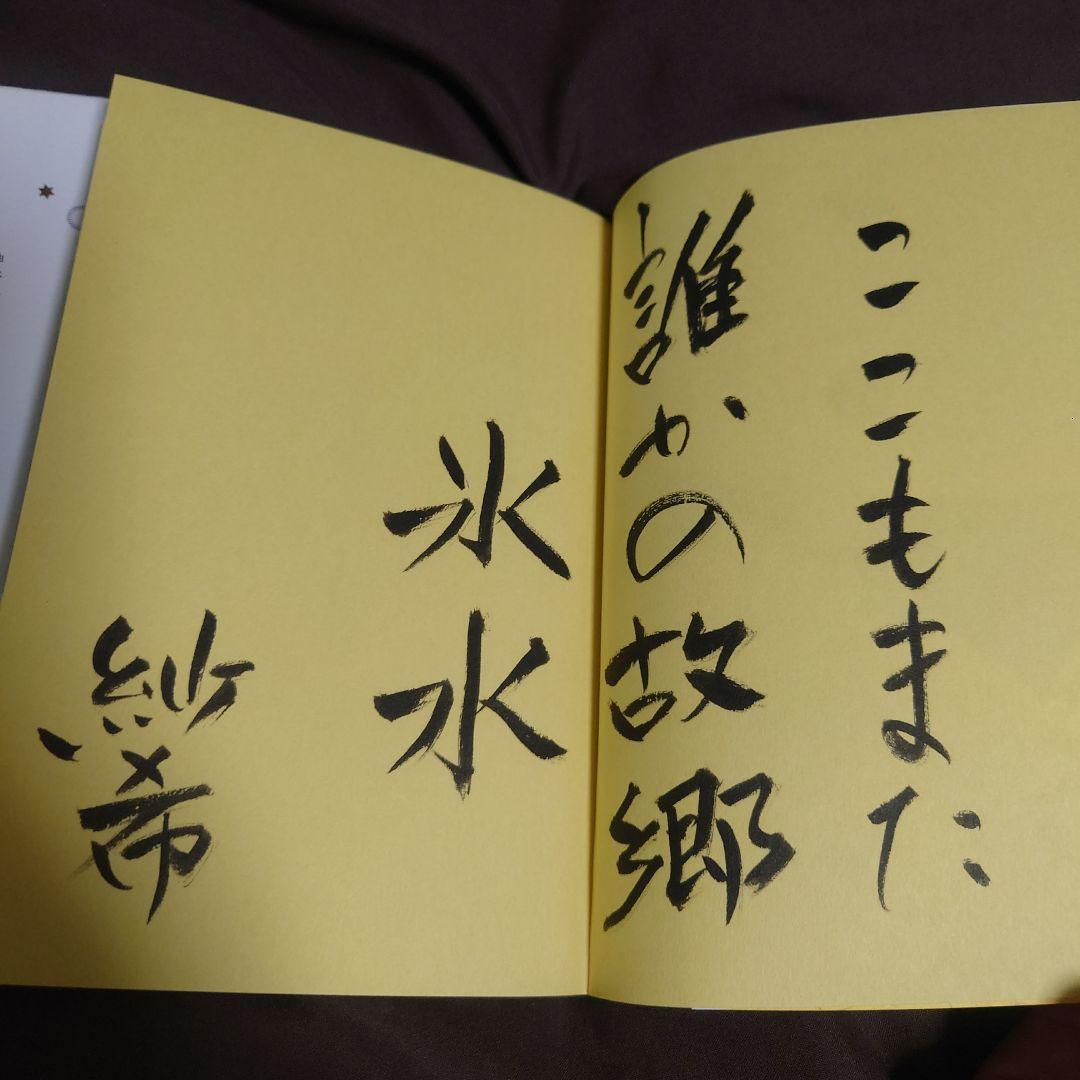 ここもまた
誰かの故郷
氷水
紗希